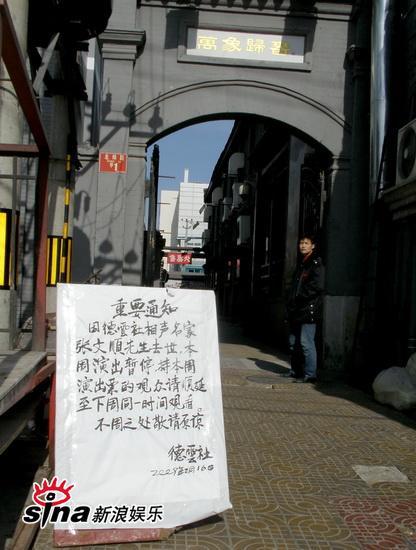 萬象歸
北纬路
甲1
重要通知
因德雲社相声名家
张文順先生去世,本
周演出暂停,持本周
演出票的观众请顺延
至下周同一时间观看。
不周之处敬请原谅
德雲社
2009年2月16日
sina新浪娱乐